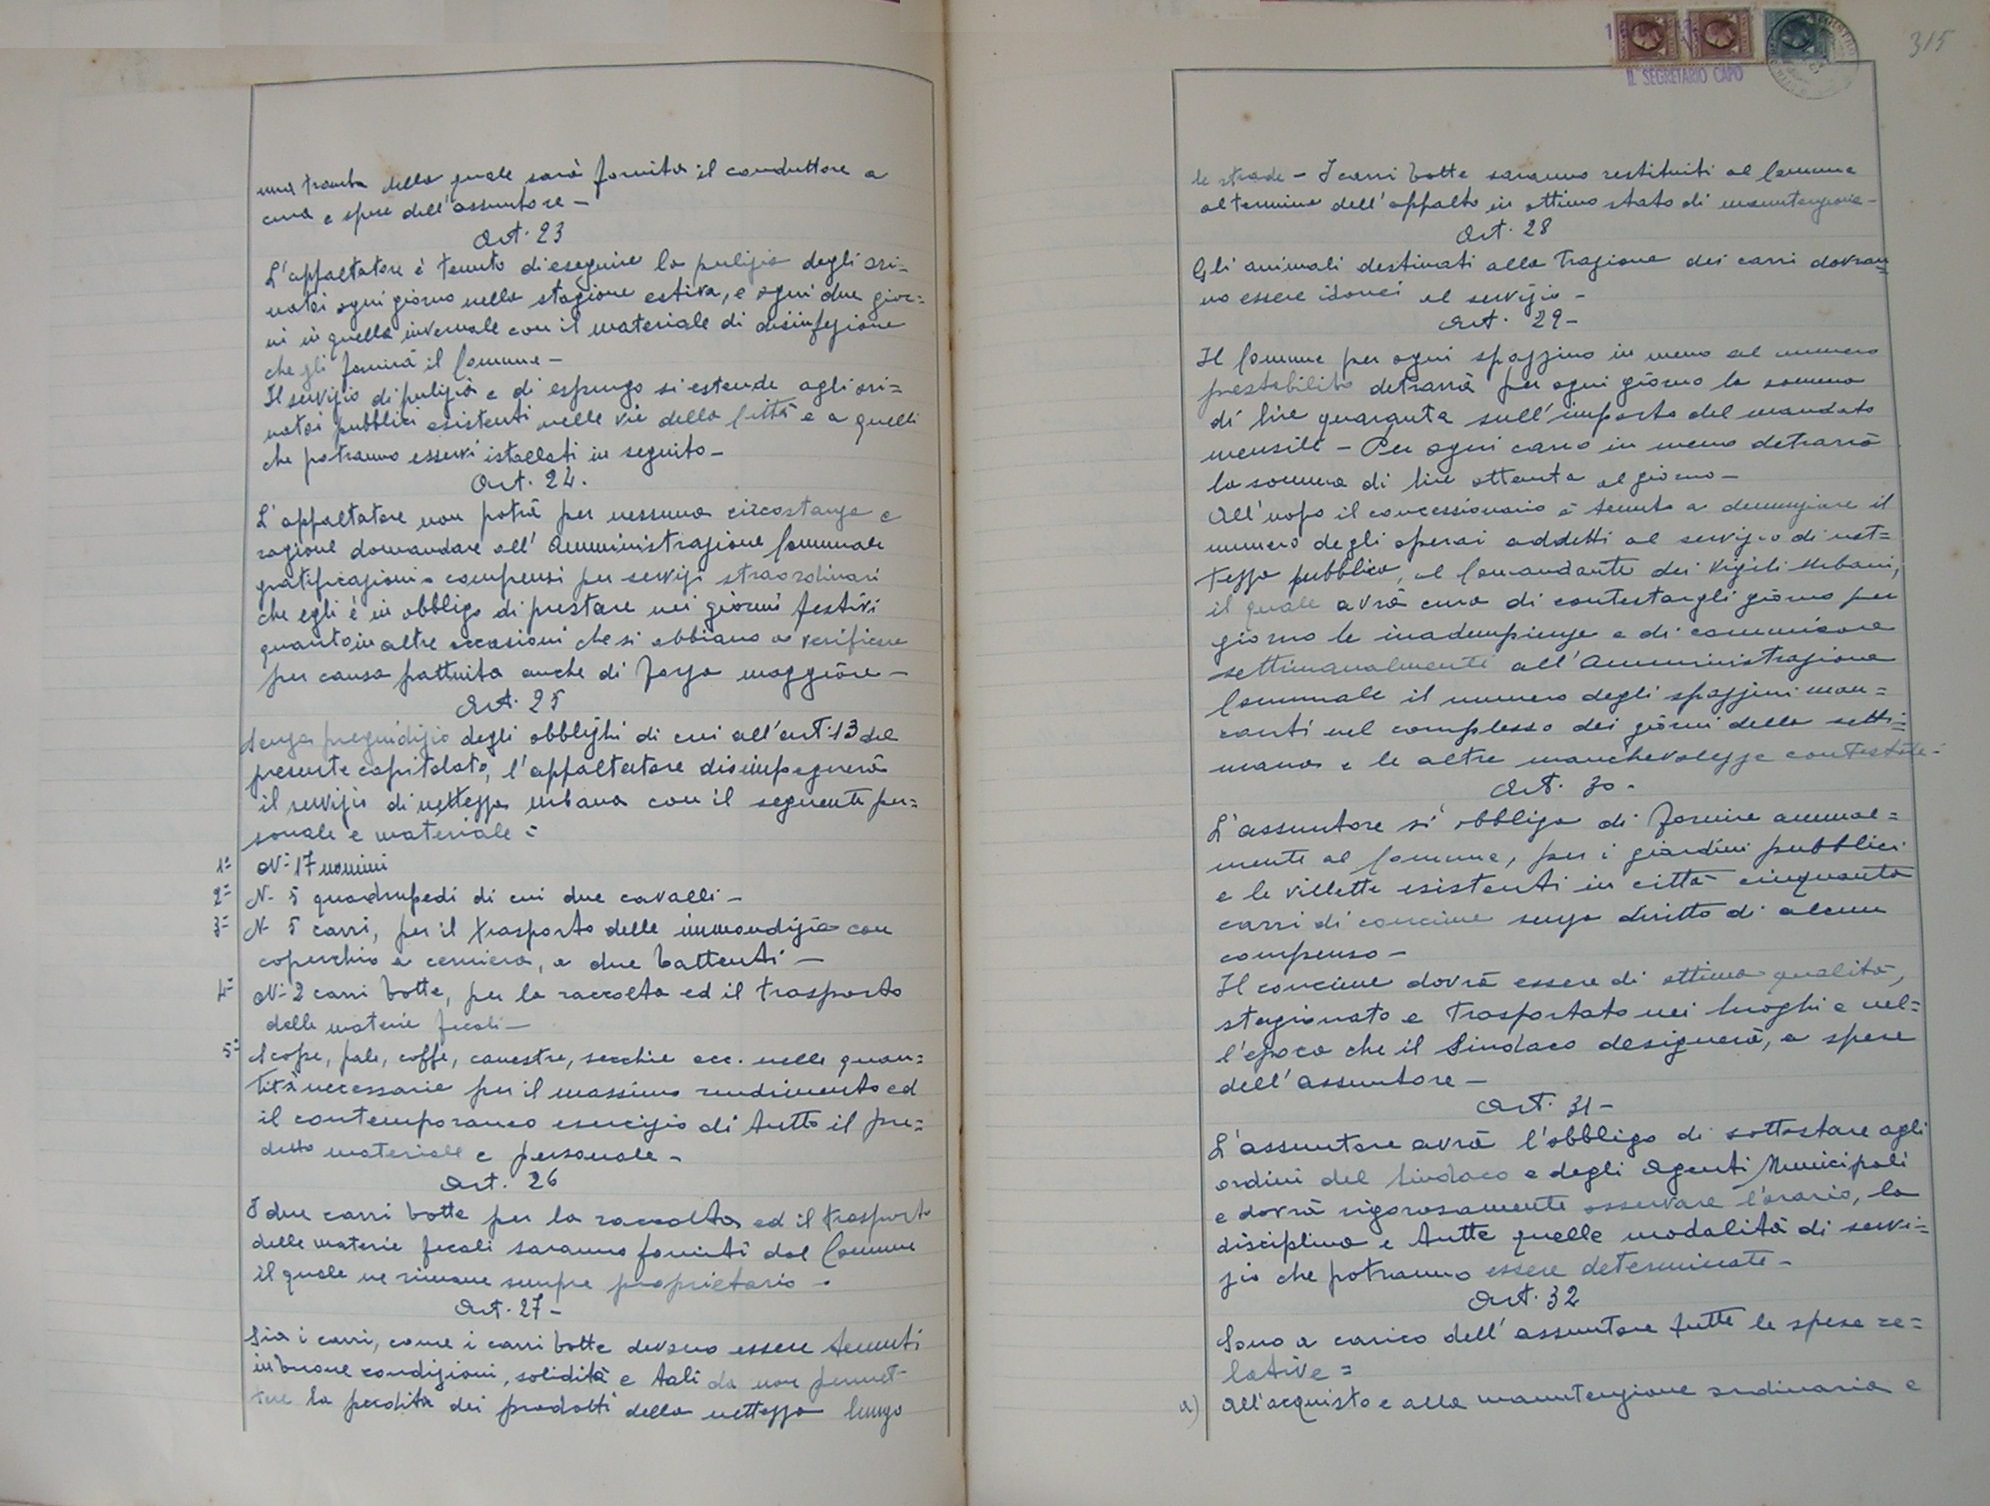 una tromba della quale sarà fornita il conduttore a
cura e spese dell'assuntore –
Art. 23
L'appaltatore è tenuto di eseguire la pulizia degli ori=
natoi ogni giorno nella stagione estiva, e ogni due gior=
ni in quella invernale con il materiale di disinfezione
che gli fornirà il Comune –
Il servizio di pulizia e di espurgo si estende agli ori=
natoi pubblici esistenti nelle vie della Città e a quelli
che potranno esservi istallati in seguito –
Art. 24.
L'appaltatore non potrà per nessuna circostanza e
ragione domandare all'Amministrazione Comunale
gratificazioni o compensi per servizi straordinari
che egli è in obbligo di prestare nei giorni festivi
quanto in altre occasioni che si abbiano a verificare
per causa fortuita anche di forza maggiore –
Art. 25
Senza pregiudizio degli obblighi di cui all'art. 13 del
presente capitolato, l'appaltatore disimpegnerà
il servizio di nettezza urbana con il seguente per=
sonale e materiale =
1= N. 17 uomini
2= N. 5 quadrupedi di cui due cavalli –
3= N. 5 carri, per il trasporto delle immondizie con
coperchio a cerniera, a due battenti –
4= N. 2 carri botte, per la raccolta ed il trasporto
delle materie fecali –
5= Scope, pale, coffe, canestre, secchie ecc. nelle quan=
tità necessarie per il massimo rendimento ed
il contemporaneo esercizio di tutto il pre=
detto materiale e personale –
Art. 26
I due carri botte per la raccolta ed il trasporto
delle materie fecali saranno forniti dal Comune
il quale ne rimane sempre proprietario –
Art. 27 –
Sia i carri, come i carri botte devono essere tenuti
in buone condizioni, solidità e tali da non permet-
tere la perdita dei prodotti della nettezza lungo
315
IL SEGRETARIO CAPO
le strade – I carri botte saranno restituiti al Comune
al termine dell'appalto in ottimo stato di manutenzione –
Art. 28
Gli animali destinati alla trazione dei carri dovran=
no essere idonei al servizio –
Art. 29 –
Il Comune per ogni spazzino in meno al numero
prestabilito detrarrà per ogni giorno la somma
di lire quaranta sull'importo del mandato
mensile – Per ogni carro in meno detrarrà
la somma di lire ottanta al giorno –
All'uopo il concessionario è tenuto a denunziare il
numero degli operai addetti al servizio di net=
tezza pubblica, al Comandante dei Vigili Urbani,
il quale avrà cura di contestargli giorno per
giorno le inadempienze e di comunicare
settimanalmente all'Amministrazione
Comunale il numero degli spazzini man=
canti nel complesso dei giorni della setti=
mana e le altre manchevolezze contestate –
Art. 30 –
L'assuntore si obbliga di fornire annual=
mente al Comune, per i giardini pubblici
e le villette esistenti in città cinquanta
carri di concime senza diritto di alcun
compenso –
Il concime dovrà essere di ottima qualità,
stagionato e trasportato nei luoghi e nel=
l'epoca che il Sindaco designerà, a spese
dell'assuntore –
Art. 31 –
L'assuntore avrà l'obbligo di sottostare agli
ordini del Sindaco e degli Agenti Municipali
e dovrà rigorosamente osservare l'orario, la
disciplina e tutte quelle modalità di servi=
zio che potranno essere determinate –
Art. 32
Sono a carico dell'assuntore tutte le spese re=
lative =
a) All'acquisto e alla manutenzione ordinaria e